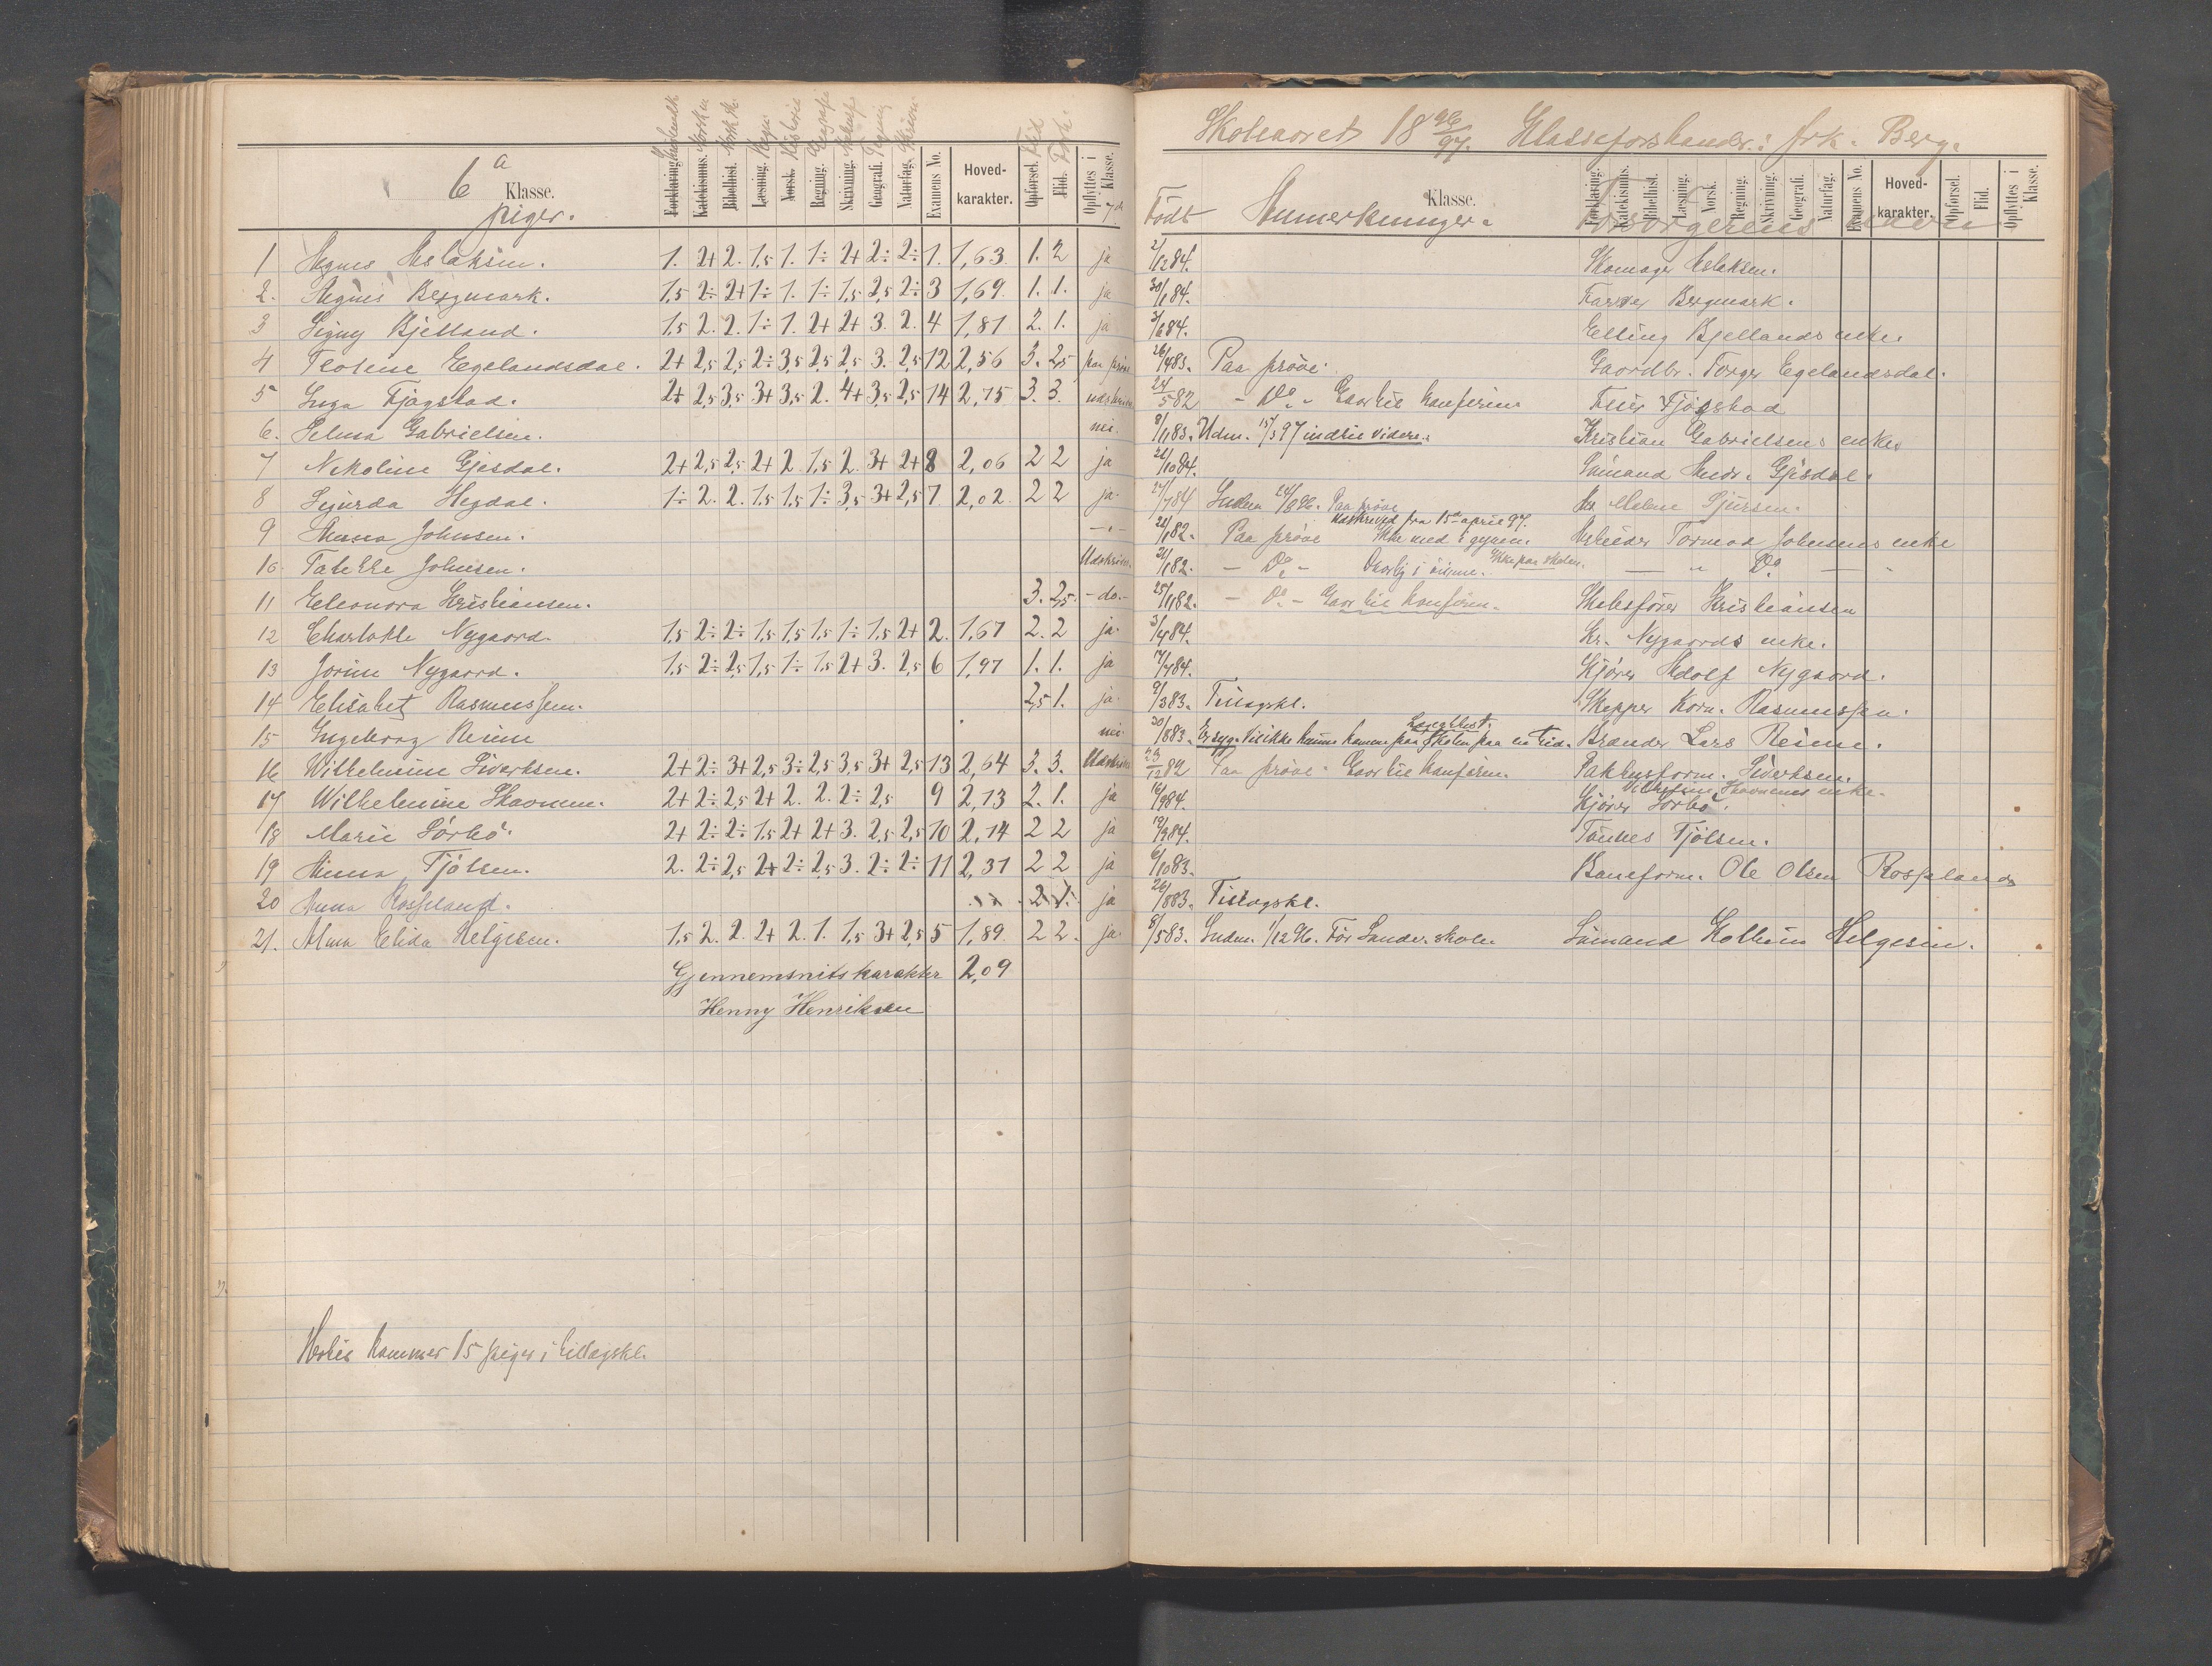 Skoleaaret 18 96/97. Klasseforstander: frk. Berg.
6 a Klasse. piger.
Forklaring. Katekismus. Bibelhist. Læsning. Norsk. Regning. Skrivning. Geografi. Naturfag. Examens No. Hoved-karakter. Opførsel. Flid. Opflyttes i Klasse. 7de
Født Anmerkninger. Klasse. Forsørgerens navn
Forklaring. Katekismus. Bibelhist. Læsning. Norsk. Regning. Skrivning. Geografi. Naturfag. Examens No. Hoved-karakter. Opførsel. Flid. Opflyttes i Klasse.
1 Agnes Aslaksen. 1. 2+ 2. 1,5 1. 1÷ 2+ 2÷ 2÷ 1. 1,63 1. 2 ja 2/12 84. Skomager Aslaksen.
2. Agnes Bergmark. 1,5 2÷ 2+ 1÷ 1. 1÷ 1,5 2,5 2÷ 3 1,69 1. 1. ja 30/1 84. Farver Bergmark.
3 Signy Bjelland. 1,5 2. 2. 1÷ 1. 2+ 2+ 3. 2. 4 1,81 2. 1. ja 3/6 84. Elling Bjellands enke.
4 Teoline Egelandsdal. 2+ 2,5 2,5 2÷ 3,5 2,5 2,5 3. 2,5 12 2,56 3. 2,5 paa prøve 26/4 83. Paa prøve. Gaardbr. Torger Egelandsdal.
5 Inga Fjøgstad. 2+ 2,5 3,5 3+ 3,5 2. 4+ 3,5 2,5 14 2,75 3. 3. udskreven 24/5 82 - Do. - Gaar til konfirm. Feier Fjøgstad
6. Selma Gabrielsen. nei. 8/11 83. Udm. 15/3 97 indtil videre. Kristian Gabrielsens enke
7 Nikoline Gjesdal. 2+ 2,5 2,5 2+ 2 1,5 2. 3+ 2+ 8 2,06 2 2 ja 26/10 84. Sømand Andr. Gjesdal.
8 Sigurda Hegdal. 1÷ 2. 2. 1,5 1,5 1÷ 3,5 3+ 2,5 7. 2,02 2 2 ja. 27/7 84 Indm 24/8 96. Paa prøve Malene Sjursen.
9 Anna Johnsen. -"- 24/1 82. Paa prøve Udskreved fra 15de april 97. Ikke med i gymn. Arbeider Tormod Johnsens enke
10. Tabitte Johnsen. Udskreven. 24/1 82. - Do. - Daarlig i øinene. Ikke paa skolen. — " Do —
11 Eleonora Kristiansen. 3. 2,5. - do.- 25/11 82. - Do - Gaar til konfirm. Skibsfører Kristiansen
12 Charlotte Nygaard. 1,5 2÷ 2÷ 1,5 1,5 1,5 1÷ 1,5 2+ 2. 1,67 2. 2 ja. 3/4 84. Kr. Nygaards enke.
13 Jorine Nygaard. 1,5 2÷ 2,5 1,5 1÷ 1,5 2+ 3. 2,5 6 1,97 1. 1. ja 17/4 84. Kjører Adolf Nygaard.
14 Elisabet Rasmussen. 2,5 1. ja. 9/3 83. Tillægskl. Skipper Korn. Rasmussen.
15 Ingeborg Reime nei 30/8 83. Er syg. Vil ikke kunne komme paa skolen paa en tid. Brander Lars Reime.
16 Wilhelmine Sivertsen. 2+ 2÷ 3+ 2,5 3÷ 2,5 3,5 3+ 2,5 13 2,64 3. 3. Udskreven 23/12 82 Paa prøve. Gaar til konfirm. Pakhusform. Sivertsen.
17 Wilhelmine Skavnen. 2+ 2÷ 2,5 2+ 2. 2. 2÷ 2,5 9 2,13 2. 1. ja 16/9 84. Wilhelm Skavnens enke.
Kjører Sørbø.
18 Marie Sørbø. 2+ 2÷ 2÷ 1,5 2+ 2+ 3. 2,5 2,5 10 2,14 2 2 ja 19/3 84. Tønnes Tjølsen.
19 Anna Tjølsen. 2. 2÷ 2,5 2+ 2÷ 2,5 3. 2÷ 2÷ 11 2,31 2 2 ja 6/10 83. Baneform. Ole Olsen Rosseland
20 Anna Rosseland. 2 1. ja 26/8 83. Tillægskl.
21. Alma Elida Helgesen. 1,5 2. 2. 2+ 2. 1. 1,5 3+ 2,5 5 1,89 2 2. ja. 8/5 83. Indm. 1/12 96. Før Lander. skole. Sømand Kolbein Helgesen.
Gjennemsnitskarakter 2,09
Henny Henriksen
Hertil kommer 15 piger i tillægskl.